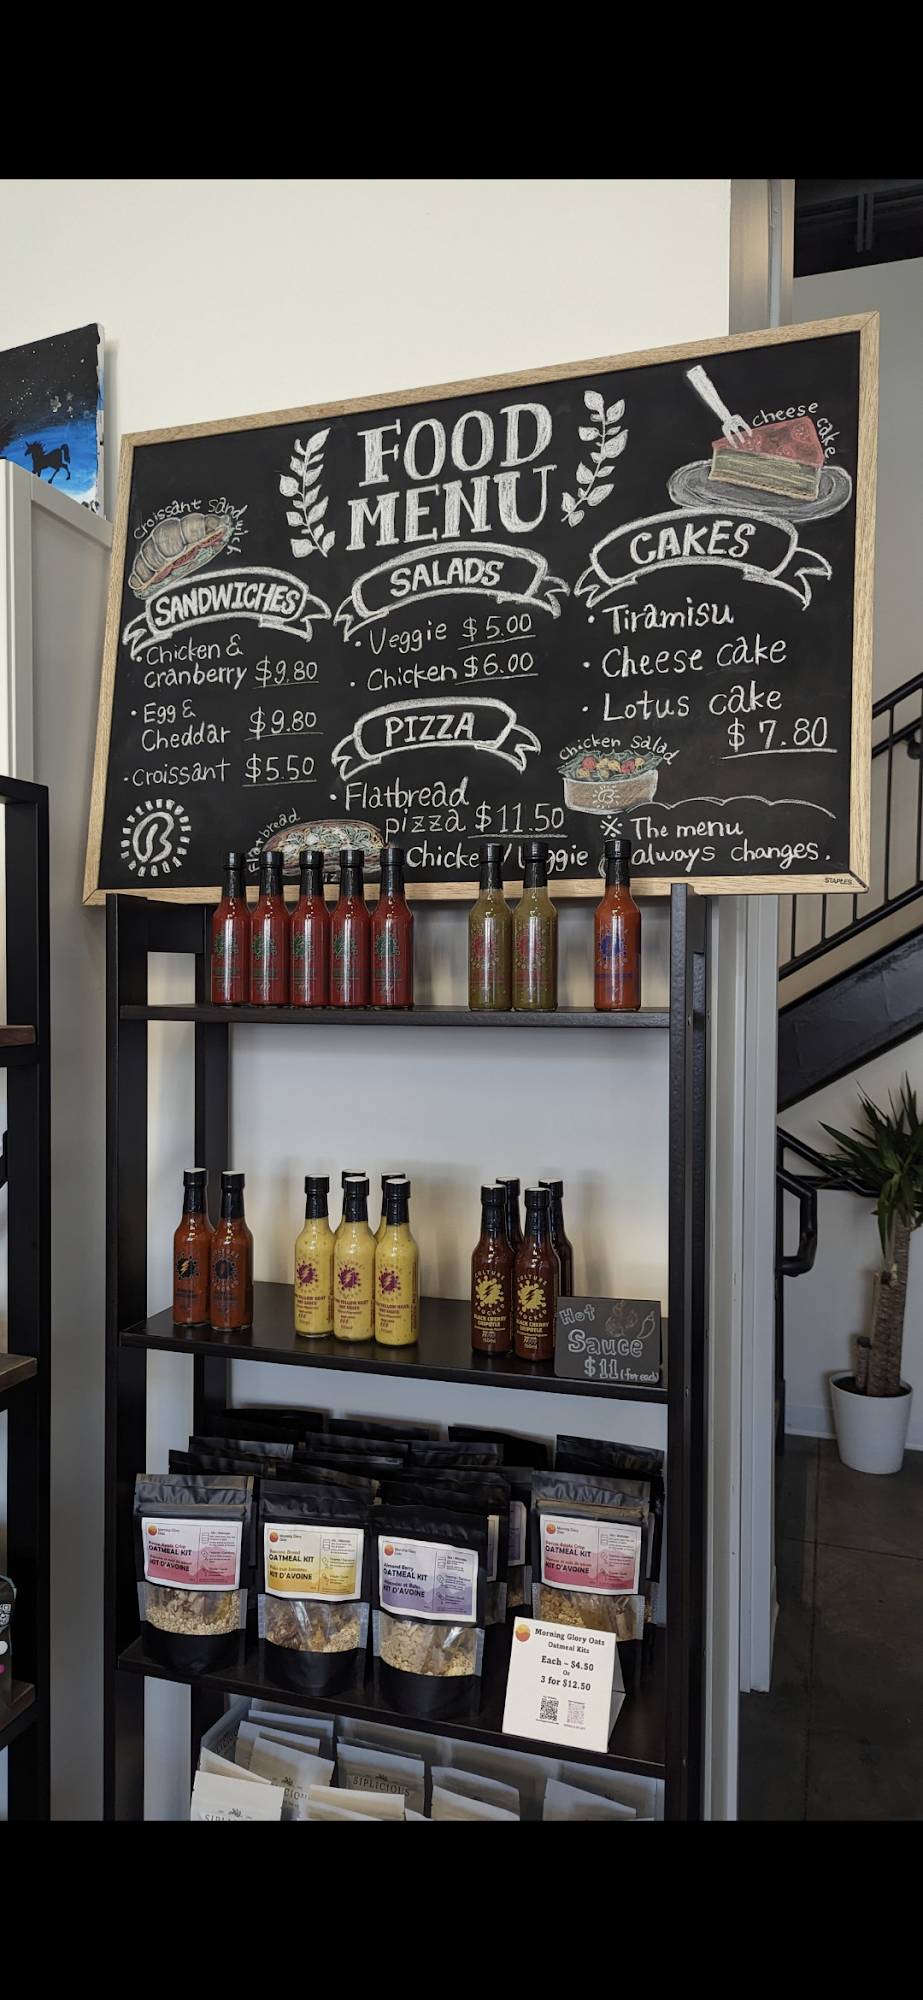 FOOD
MENU
Croissant Sandwich
SANDWICHES
• Chicken &
cranberry $9.80
• Egg &
Cheddar $9.80
• Croissant $5.50
SALADS
• Veggie $5.00
• Chicken $6.00
PIZZA
• Flatbread
pizza $11.50
Flatbread
cheese cake
CAKES
• Tiramisu
• Cheese cake
• Lotus cake
$7.80
chicken salad
※ The menu
always changes.
STAPLES
HOT SAUCE
CULTURE
BLACK CHERRY
CHIPOTLE
150ml
BLACK CHERRY
CHIPOTLE
150ml
Hot
Sauce
$11 (for each)
Morning Glory
Oats
OATMEAL KIT
KIT D'AVOINE
Morning Glory
Oats
Banana Bread
OATMEAL KIT
KIT D'AVOINE
Morning Glory
Oats
Almond Berry
OATMEAL KIT
KIT D'AVOINE
OATMEAL KIT
KIT D'AVOINE
Morning Glory Oats
Oatmeal Kits
Each – $4.50
Or
3 for $12.50
SIPLICIOUS